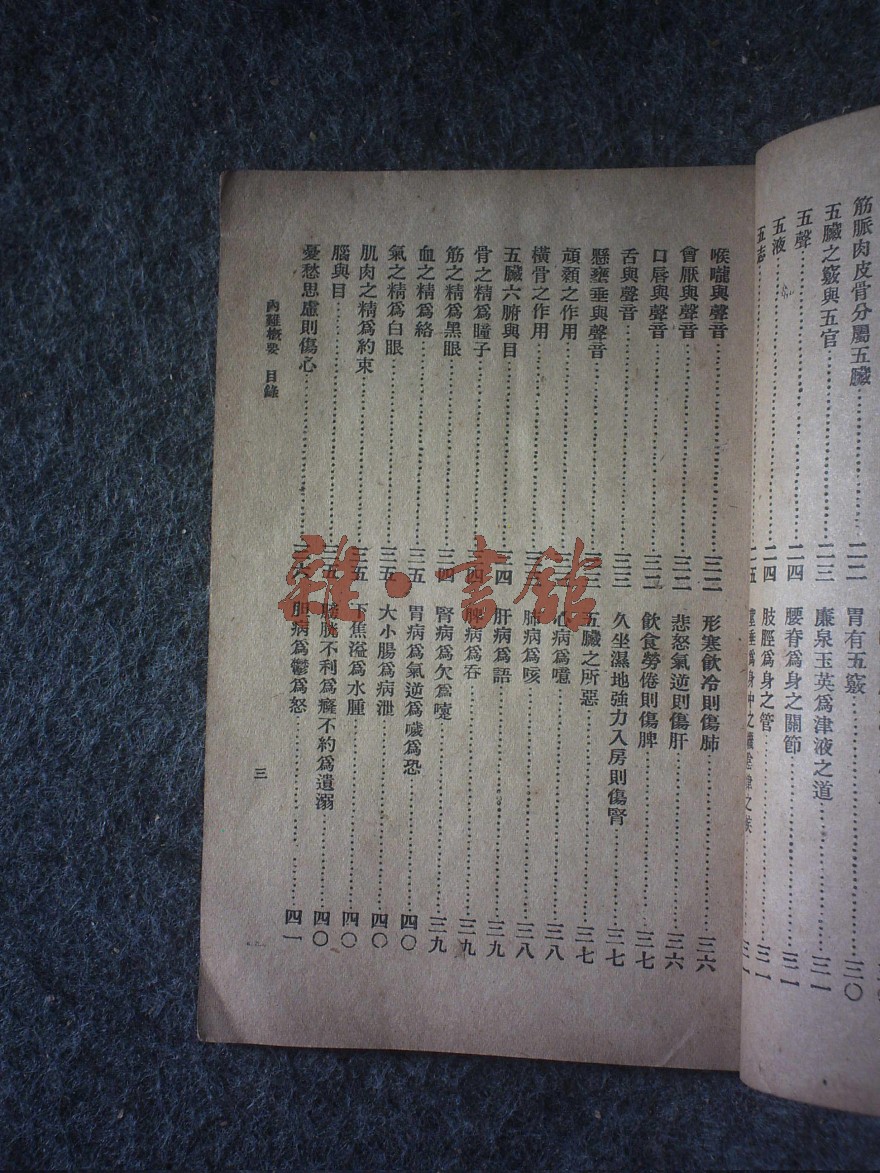 筋脈肉皮骨分屬五臟……二二
五臟之竅與五官……二三
五聲……二四
五液……二四
五志……二五
胃有五竅……三〇
廉泉玉英爲津液之道……三一
腰脊爲身之關節……三一
肢脛爲身之管……三一
喉嚨與聲音……三二
會厭與聲音……三二
口唇與聲音……三二
舌與聲音……三三
懸壅垂與聲音……三三
頏顙之作用……三三
橫骨之作用……三三
五臟六腑與目……三四
骨之精爲瞳子……三四
筋之精爲黑眼……三四
血之精爲絡……三五
氣之精爲白眼……三五
肌肉之精爲約束……三五
腦與目……三五
憂愁思慮則傷心……三六
形寒飲冷則傷肺……三六
悲怒氣逆則傷肝……三六
飲食勞倦則傷脾……三七
久坐濕地強力入房則傷腎……三七
五臟之所惡……三七
心病爲噫……三八
肺病爲咳……三八
肝病爲語……三九
脾病爲吞……三九
腎病爲欠爲嚏……三九
胃病爲氣逆爲噦爲恐……四〇
大小腸爲病泄……四〇
下焦溢爲水腫……四〇
膀胱不利爲癃不約爲遺溺……四〇
胆病爲鬱爲怒……四一
內難概要 目錄
三
雜·書館